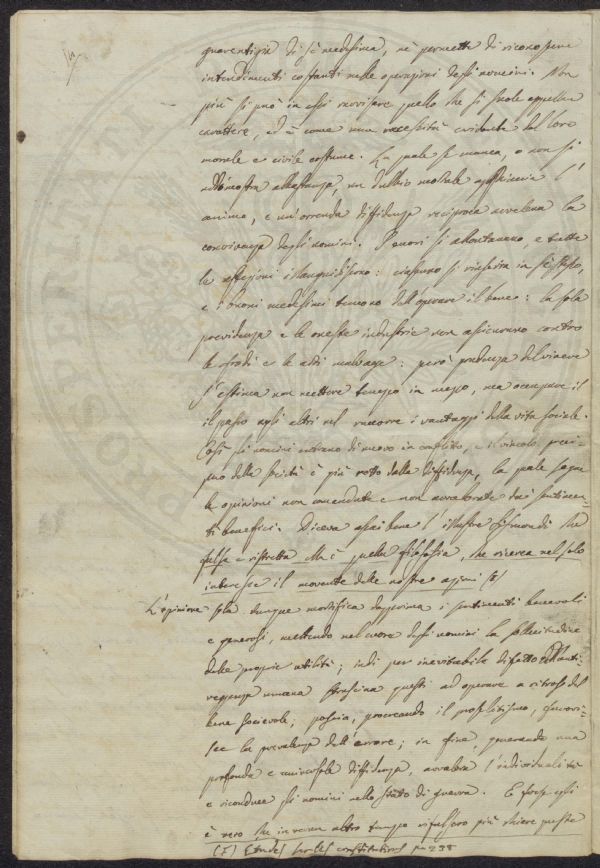 guarentigia di sè medesima, nè permette di riconoscere
intendimenti costanti nelle operazioni degli uomini. Non
più si può in essi ravvisare quello che si suole appellare
carattere, ed è come una necessità evidente del loro
morale e civile costume. La quale se manca, o non si
addimostra abbastanza, un dubbio mortale agghiaccia l'
anima, e un'orrenda diffidenza reciproca avvelena la
convivenza degli uomini. I cuori si allontanano, e tutte
le affezioni illanguidiscono: ciascuno si rinserra in sè stesso,
e i buoni medesimi temono dell'operare il bene: la sola
previdenza e le oneste industrie non assicurano contro
le frodi e le arti malvage: però prudenza del vivere
s'estima non mettere tempo in mezzo, ma occupare il
il passo agli altri nel raccorre i vantaggi della vita sociale.
Così gli uomini entrano di nuovo in conflitto, e il vincolo
della società è più rotto dalla diffidenza, la quale segue
le opinioni non emendate e non avvalorate dai sentimen-
ti benefici. Diceva assai bene l'illustre Sismondi che
falsa e ristretta è quella filosofia, che ricerca nel solo
interesse il movente delle nostre azioni
L'opinione sola dunque mortifica dapprima i sentimenti benevoli
e generosi, mettendo nel cuore degli uomini la sollecitudine
delle proprie utilità; indi per inevitabile difetto dell'anti-
veggenza umana strascina questi ad operare a ritroso del
bene socievole; poscia, procreando il proselitismo, favori-
sce la prevalenza dell'errore; in fine, generando una
profonda e universale diffidenza, avvalora l'individualismo
e riconduce gli uomini nello stato di guerra. E forse egli
è vero che in verun altro tempo rifulsero più chiare queste
Etudes sur les constitutions p. 238